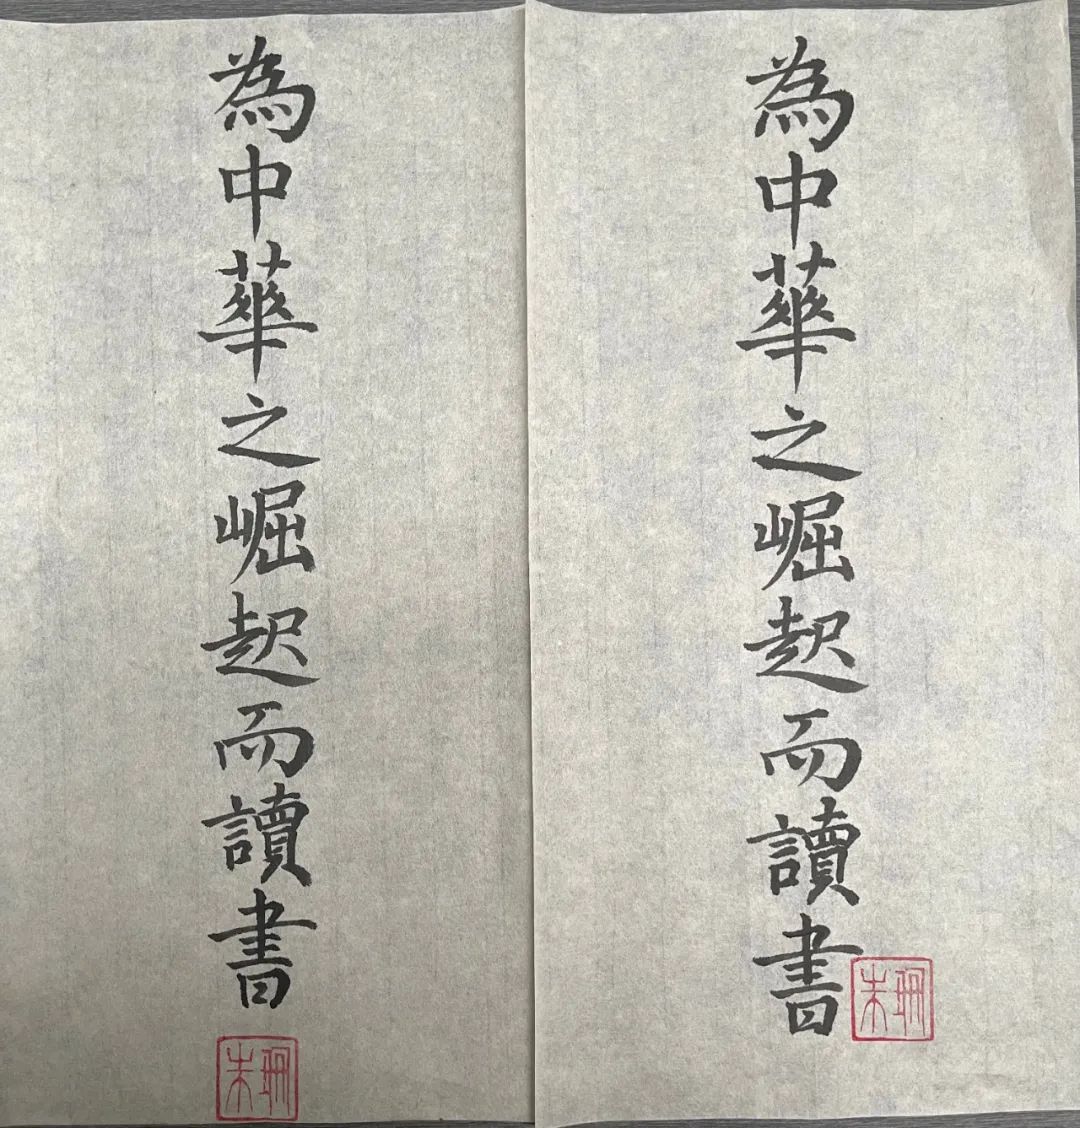 為中華之崛起而讀書
為中華之崛起而讀書